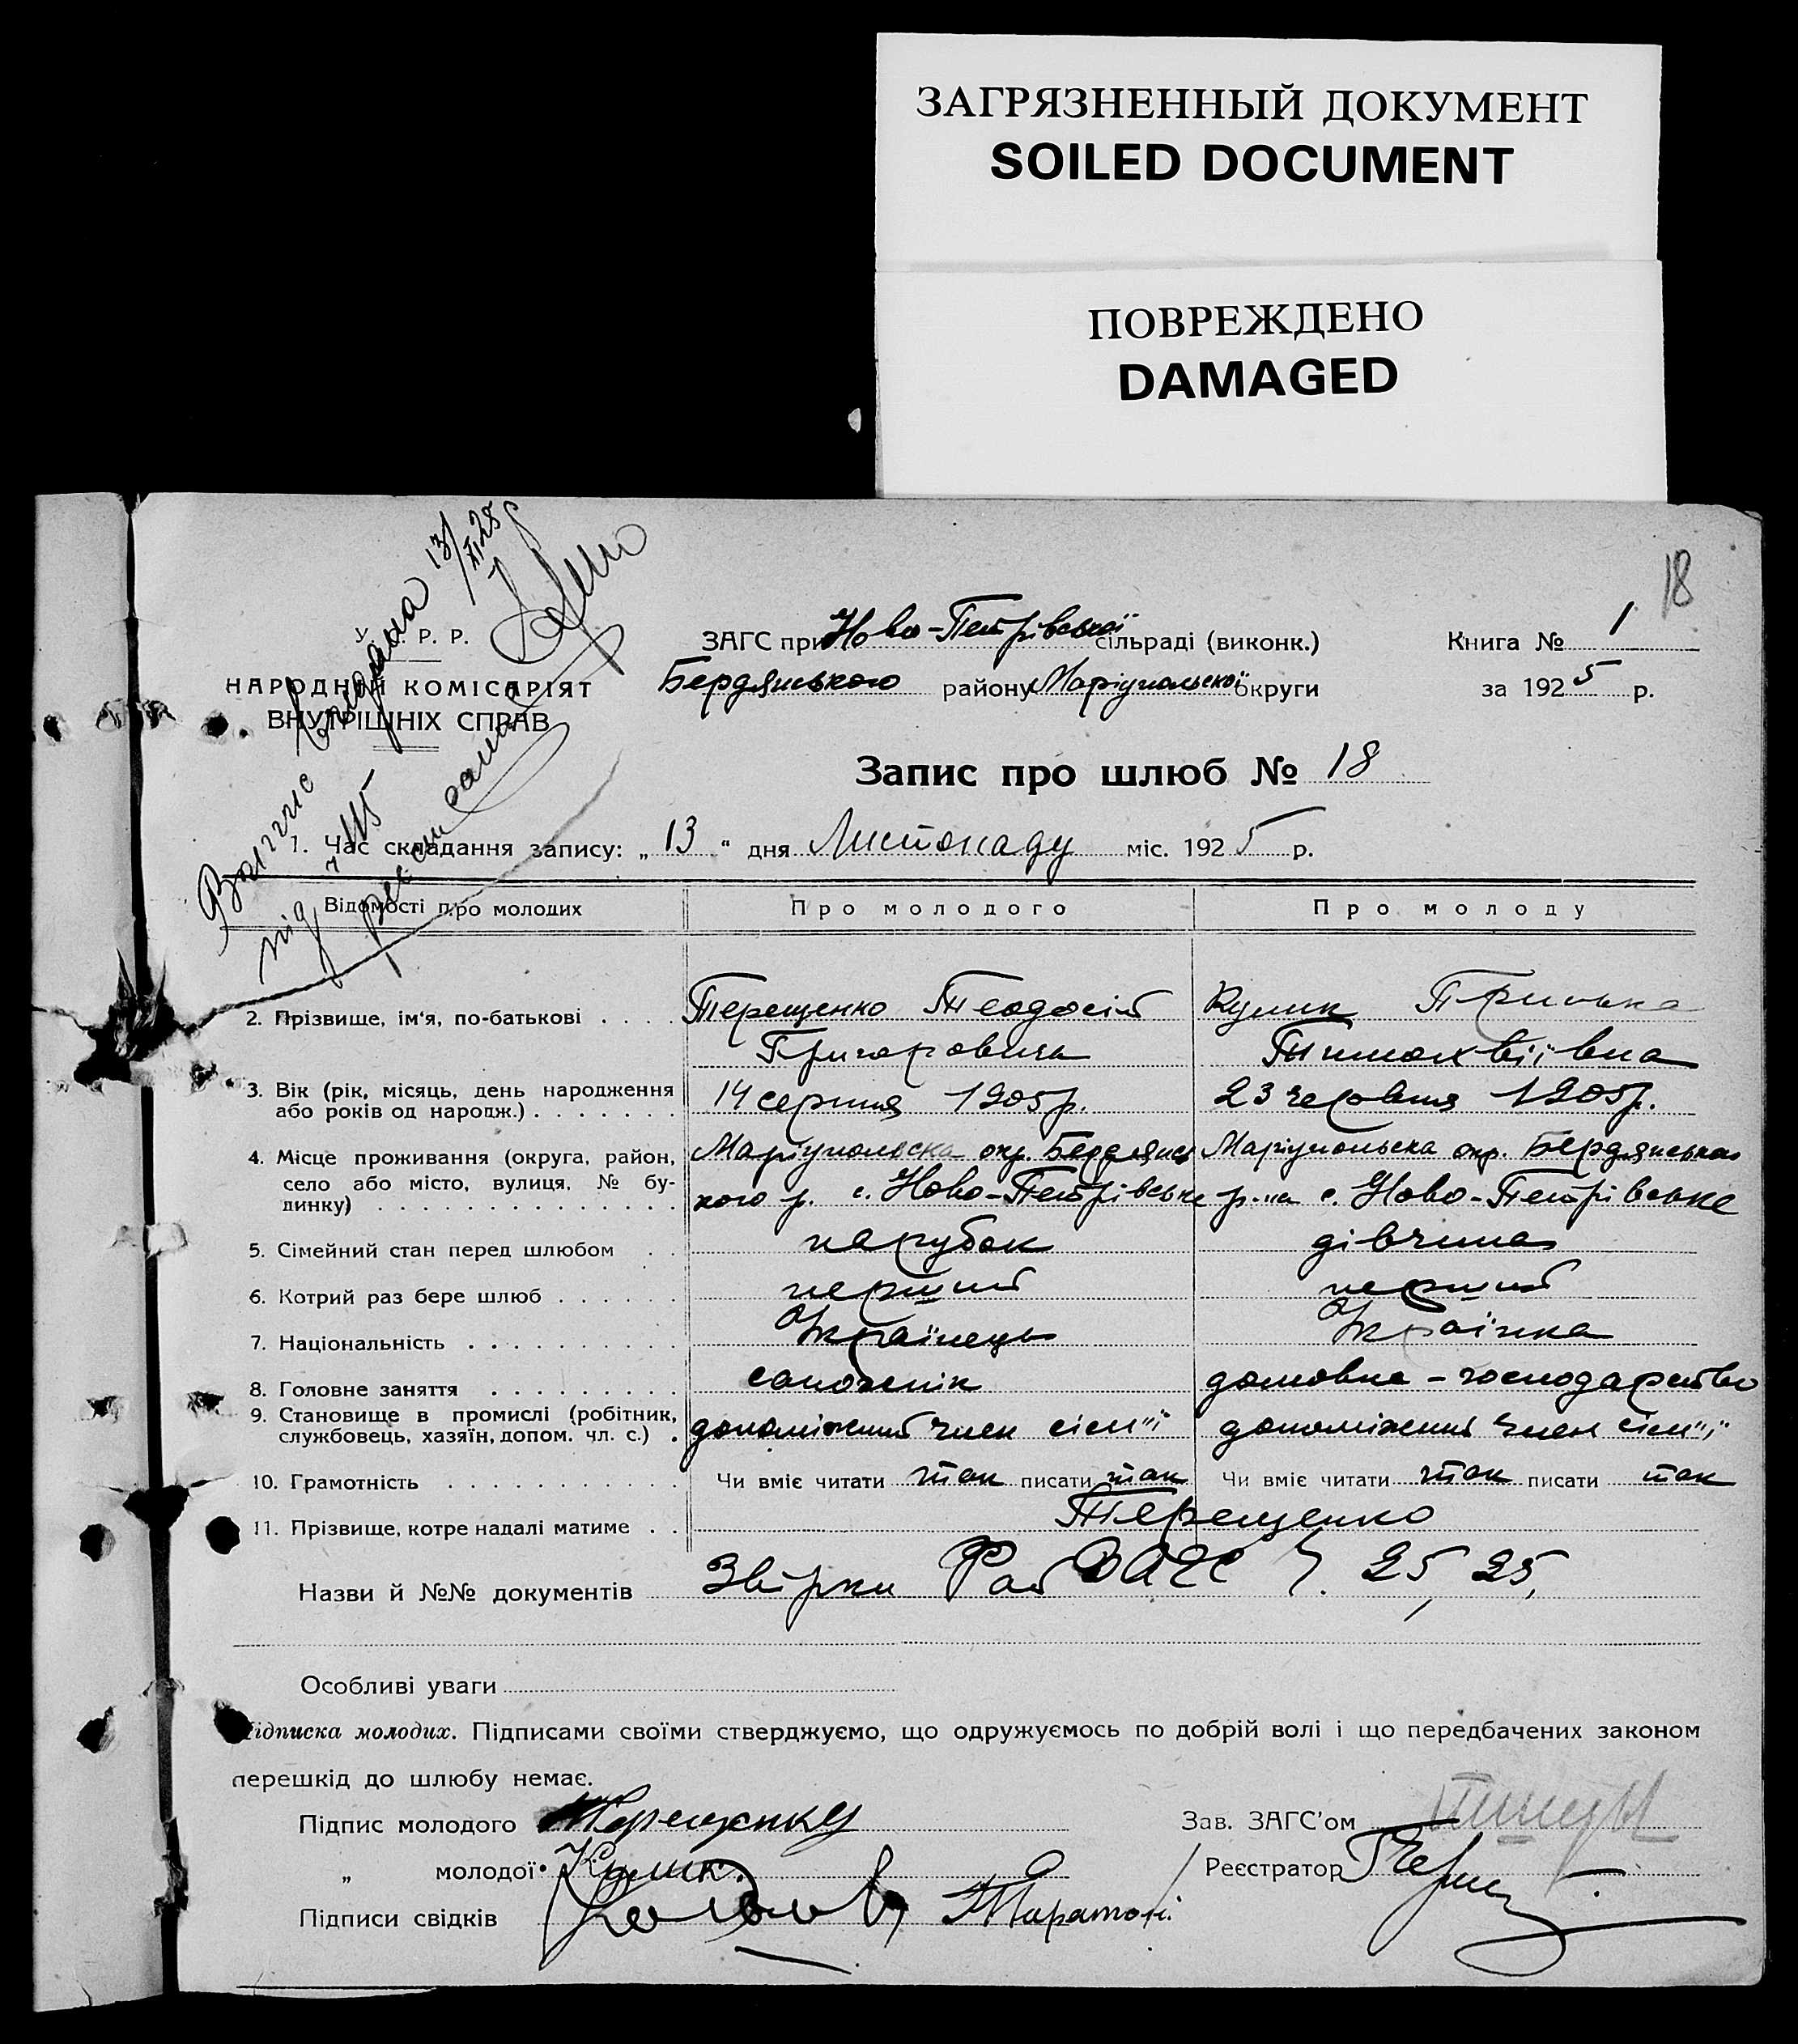 ЗАГРЯЗНЕННЫЙ ДОКУМЕНТ
SOILED DOCUMENT
ПОВРЕЖДЕНО
DAMAGED
18
13/XI 25 р
У. Р. Р.
НАРОДНИЙ КОМІСАРІЯТ
ВНУТРІШНІХ СПРАВ
під ч 115
ЗАГС при Ново-Петрівської сільраді (виконк.) Книга № 1
Бердянського району Маріупольської округи за 1925 р.
Запис про шлюб № 18
1. Час складання запису: „13" дня Листопаду міс. 1925 р.
Відомості про молодих Про молодого Про молоду
2. Прізвище, ім'я, по-батькові Терещенко Теодосій Кулик
Григорович Тимохвіївна
3. Вік (рік, місяць, день народження
або років од народж.) 14 серпня 1905 р. 23 червня 1905 р.
4. Місце проживання (округа, район, Маріупольска окр. Бердянсь Маріупольска окр. Бердянського
село або місто, вулиця, № бу-
динку) кого р. с. Ново-Петрівське р-на с. Ново-Петрівське
5. Сімейний стан перед шлюбом парубок дівчина
6. Котрий раз бере шлюб перший перший
7. Національність Українець Українка
8. Головне заняття сапожнік домовне - господарство
9. Становище в промислі (робітник,
службовець, хазяїн, допом. чл. с.) допоміжний член сім"ї допоміжний член сім"ї
10. Грамотність Чи вміє читати так писати так Чи вміє читати так писати так
11. Прізвище, котре надалі матиме Терещенко
Назви й №№ документів ЗАГС Ч. 25, 25,
Особливі уваги
Підписка молодих. Підписами своїми стверджуємо, що одружуємось по добрій волі і що передбачених законом
перешкід до шлюбу немає.
Підпис молодого Зав. ЗАГС'ом
„ молодої Реєстратор
Підписи свідків